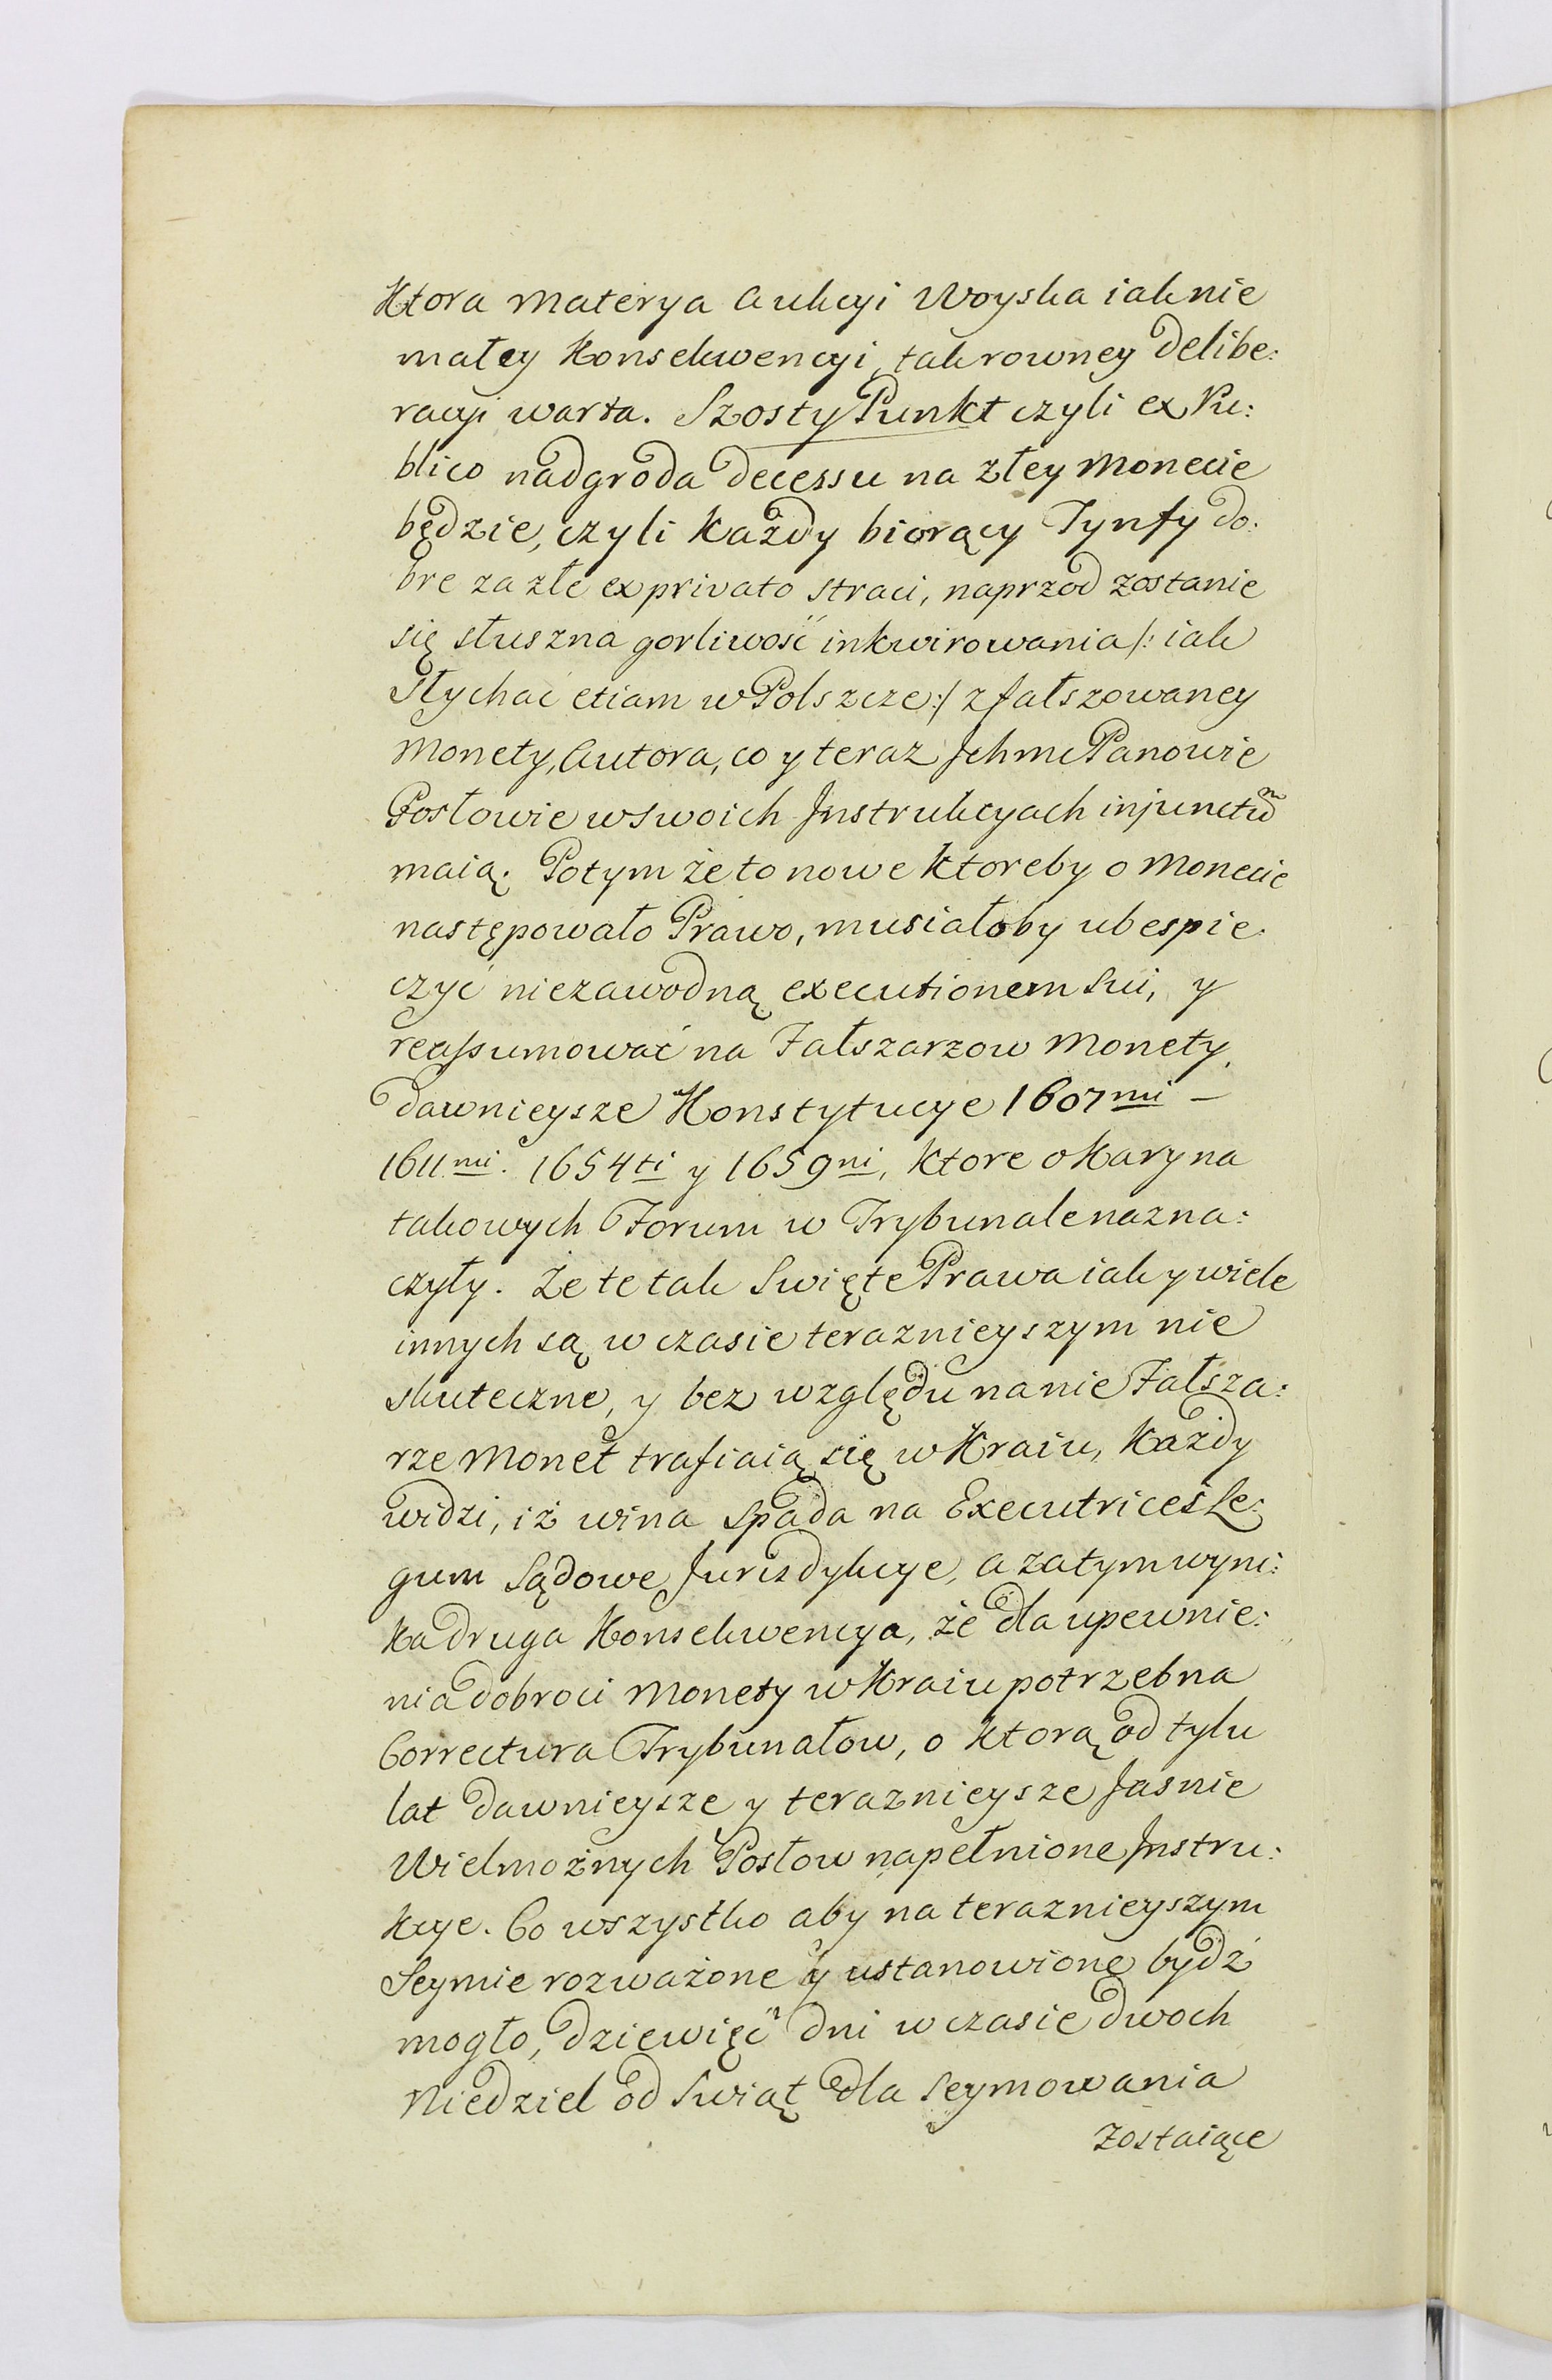 Ktora Materya Aukcyi Woyska iak nie
małey Konsekwencyi, tak rowney delibe:
racyi warta. Szosty Punkt czyli ex Pu:
blico nadgroda decessu na złey Monecie
będzie, czyli każdy biorący Tynfy do:
bre za złe ex privato straci, naprzod zostanie
się słuszna gorliwość inkwirowania /: iak
słychać etiam w Polszcze :/ zfałszowaney
Monety, Autora, co y teraz Jchmć Panowie
Posłowie w swoich Jnstrukcyach injunctũ
maią. Potym że to nowe ktoreby o Monecie
następowało Prawo, musiałoby ubespie:
czyć niezawodną executionem sui, y
reassumować na Fałszarzow Monety,
dawnieysze Konstytucye 1607mi –
1611mi. 1654ti y 1659ni, ktore o Kary na
takowych Forum w Trybunale nazna:
czyły. Że te tak Swięte Prawa iak y wiele
innych są w czasie teraznieyszym nie
skuteczne, y bez względu na nie Fałsza:
rze Monet trafiaią się w Kraiu, każdy
widzi, iż wina spada na Executrices Le:
gum Sądowe Jurisdykcye, a zatym wyni:
ka druga Konsekwencya, że dla upewnie:
nia dobroci Monety w Kraiu potrzebna
Correctura Trybunałow, o ktorą od tylu
lat dawnieysze y teraznieysze Jasnie
Wielmożnych Posłow napełnione Jnstru:
kcye. Co wszystko aby na teraznieyszym
Seymie rozważone y ustanowione bydź
mogło, dziewięć dni w czasie dwoch
Niedziel od Swiąt dla Seymowania
zostaiące